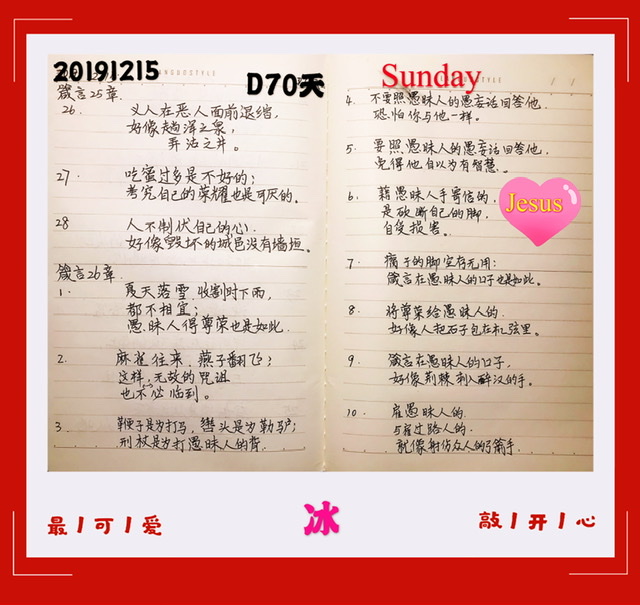 20191215
D70天
Sunday
箴言25章.
26. 义人在恶人面前退缩,
好像趟浑之泉,
弄浊之井。
27. 吃蜜过多是不好的;
考究自己的荣耀也是可厌的。
28 人不制伏自己的心.
好像毁坏的城邑没有墙垣。
箴言26章
1. 夏天落雪.收割时下雨,
都不相宜;
愚昧人得尊荣也是如此.
2. 麻雀往来.燕子翻飞;
这样,无故的咒诅
也不必临到。
3. 鞭子是为打马,辔头是为勒驴;
刑杖是为打愚昧人的背.
4. 不要照愚昧人的愚妄话回答他.
恐怕你与他一样。
5. 要照愚昧人的愚妄话回答他.
免得他自以为有智慧.
6. 藉愚昧人手寄信的,
是砍断自己的脚,
自受损害.
Jesus
7. 瘸子的脚空存无用:
箴言在愚昧人的口中也是如此。
8. 将尊荣给愚昧人的.
好像人把石子包在机弦里。
9. 箴言在愚昧人的口中,
好像荆棘刺入醉汉的手。
10. 雇愚昧人的.
与雇过路人的.
就像射伤众人的弓箭手.
最丨可丨爱
冰
敲丨开丨心